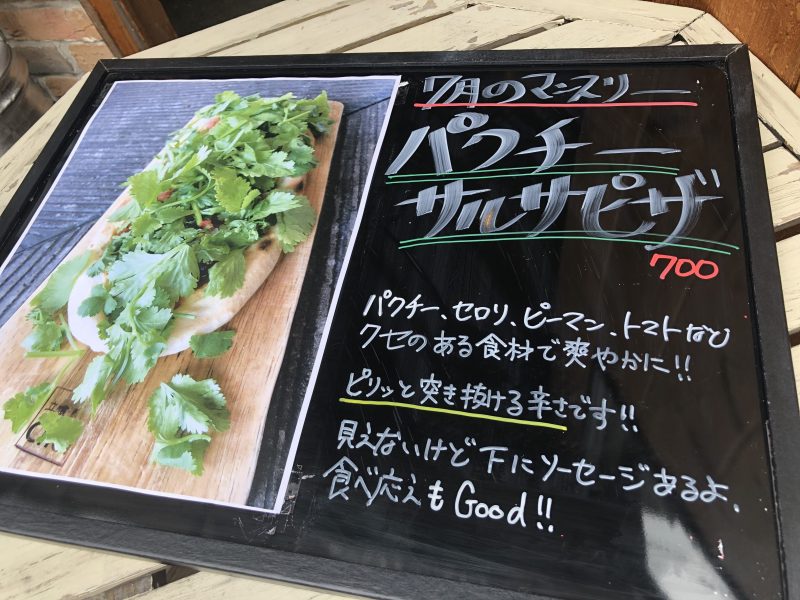 7月のマンスリー
パクチー
サルサピザ
700
パクチー、セロリ、ピーマン、トマトなど
クセのある食材で爽やかに!!
ピリッと突き抜ける辛さです!!
見えないけど下にソーセージあるよ、
食べ応えもGood!!